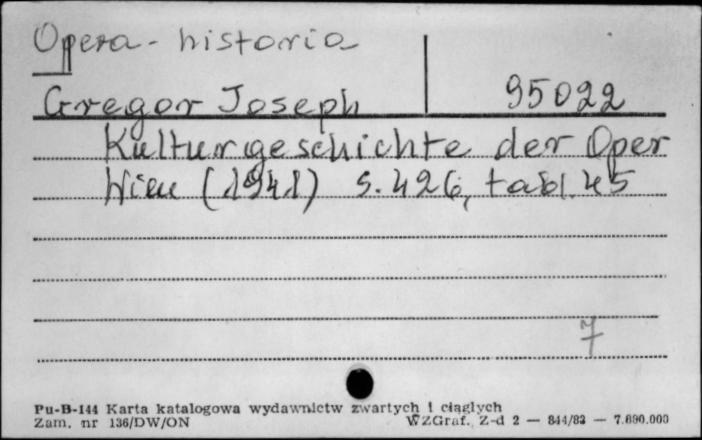 Opera - historia
Gregor Joseph 95022
Kulturgeschichte der Oper
Wien (1941) S. 426, tabl. 45
7
Pu-B-144 Karta katalogowa wydawnictw zwartych i ciągłych
Zam. nr 136/DW/ON WZGraf., Z-d 2 — 844/83 — 7.690.000